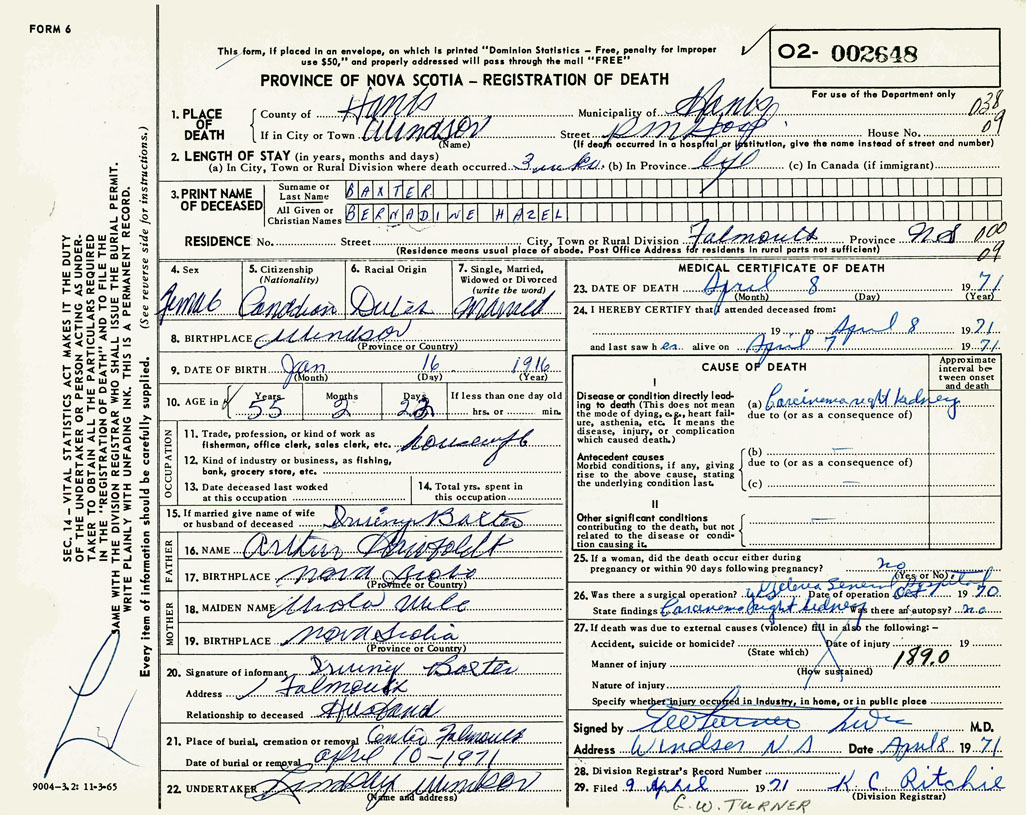 FORM 6
This form, if placed in an envelope, on which is printed "Dominion Statistics – Free, penalty for improper
use $50," and properly addressed will pass through the mail "FREE"
PROVINCE OF NOVA SCOTIA – REGISTRATION OF DEATH
02- 002648
For use of the Department only
038
09
1. PLACE OF DEATH
County of Hants Municipality of Hants
If in City or Town Windsor Street P M Hosp. House No.
(Name) (If death occurred in a hospital or institution, give the name instead of street and number)
2. LENGTH OF STAY (in years, months and days)
(a) In City, Town or Rural Division where death occurred 3 wks. (b) In Province life (c) In Canada (if immigrant)
3. PRINT NAME OF DECEASED
Surname or Last Name BAXTER
All Given or Christian Names BERNADINE HAZEL
RESIDENCE No. Street City, Town or Rural Division Falmouth Province N S
000
09
(Residence means usual place of abode. Post Office Address for residents in rural parts not sufficient)
4. Sex Female
5. Citizenship (Nationality) Canadian
6. Racial Origin Dutch
7. Single, Married, Widowed or Divorced (write the word) Married
8. BIRTHPLACE Windsor
(Province or Country)
9. DATE OF BIRTH Jan 16 1916
(Month) (Day) (Year)
10. AGE in Years 55 Months 2 Days 23 If less than one day old
hrs. or min.
OCCUPATION
11. Trade, profession, or kind of work as
fisherman, office clerk, sales clerk, etc. housewife
12. Kind of industry or business, as fishing,
bank, grocery store, etc.
13. Date deceased last worked
at this occupation
14. Total yrs. spent in
this occupation
15. If married give name of wife
or husband of deceased Baxter
FATHER
16. NAME Arthur
17. BIRTHPLACE Nova Scotia
(Province or Country)
MOTHER
18. MAIDEN NAME
19. BIRTHPLACE Nova Scotia
(Province or Country)
20. Signature of informant Baxter
Address Falmouth
Relationship to deceased Husband
21. Place of burial, cremation or removal Center Falmouth
Date of burial or removal April 10-1971
22. UNDERTAKER Lindsay Windsor
(Name and address)
MEDICAL CERTIFICATE OF DEATH
23. DATE OF DEATH April 8 1971
(Month) (Day) (Year)
24. I HEREBY CERTIFY that I attended deceased from:
19 to April 8 1971
and last saw her alive on April 7 1971
CAUSE OF DEATH
Approximate interval between onset and death
I
Disease or condition directly lead-
ing to death (This does not mean
the mode of dying, e.g., heart fail-
ure, asthenia, etc. It means the
disease, injury, or complication
which caused death.)
(a) Carcinema right kidney
due to (or as a consequence of)
Antecedent causes
Morbid conditions, if any, giving
rise to the above cause, stating
the underlying condition last.
(b) —
due to (or as a consequence of)
(c) —
II
Other significant conditions
contributing to the death, but not
related to the disease or condi-
tion causing it.
—
—
25. If a woman, did the death occur either during
pregnancy or within 90 days following pregnancy? no
(Yes or No)
26. Was there a surgical operation? Victoria General Hospital Date of operation Oct 1970
State findings Carcinema right kidney Was there an autopsy? no
27. If death was due to external causes (violence) fill in also the following:–
Accident, suicide or homicide? Date of injury 19
(State which)
Manner of injury 189.0
(How sustained)
Nature of injury
Specify whether injury occurred in Industry, in home, or in public place
Signed by M.D.
Address Windsor N S Date April 8 1971
28. Division Registrar's Record Number
29. Filed 9 April 1971 K. C. Ritchie
(Division Registrar)
G. W. TURNER
SEC. 14 – VITAL STATISTICS ACT MAKES IT THE DUTY
OF THE UNDERTAKER OR PERSON ACTING AS UNDER-
TAKER TO OBTAIN ALL THE PARTICULARS REQUIRED
IN THE "REGISTRATION OF DEATH" AND TO FILE THE
SAME WITH THE DIVISION REGISTRAR WHO SHALL ISSUE THE BURIAL PERMIT.
WRITE PLAINLY WITH UNFADING INK. THIS IS A PERMANENT RECORD.
Every item of information should be carefully supplied. (See reverse side for instructions.)
9004-3.2: 11-3-65